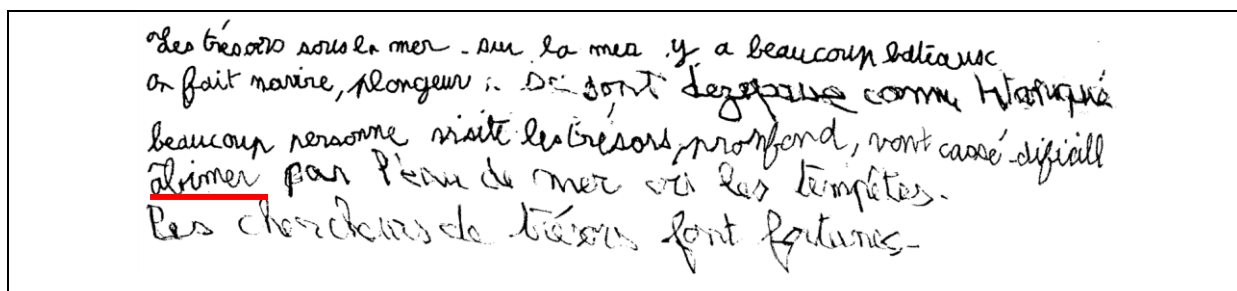 Les trésors sous la mer - sur la mer y a beaucoup bateausc
on fait navire, plongeur : se sont comme
beaucoup personne visite les trésors, pronfond, vont cassé - dificill
abimer par l'eau de mer ou les tempêtes.
Les chercheurs de trésors font fortunes -